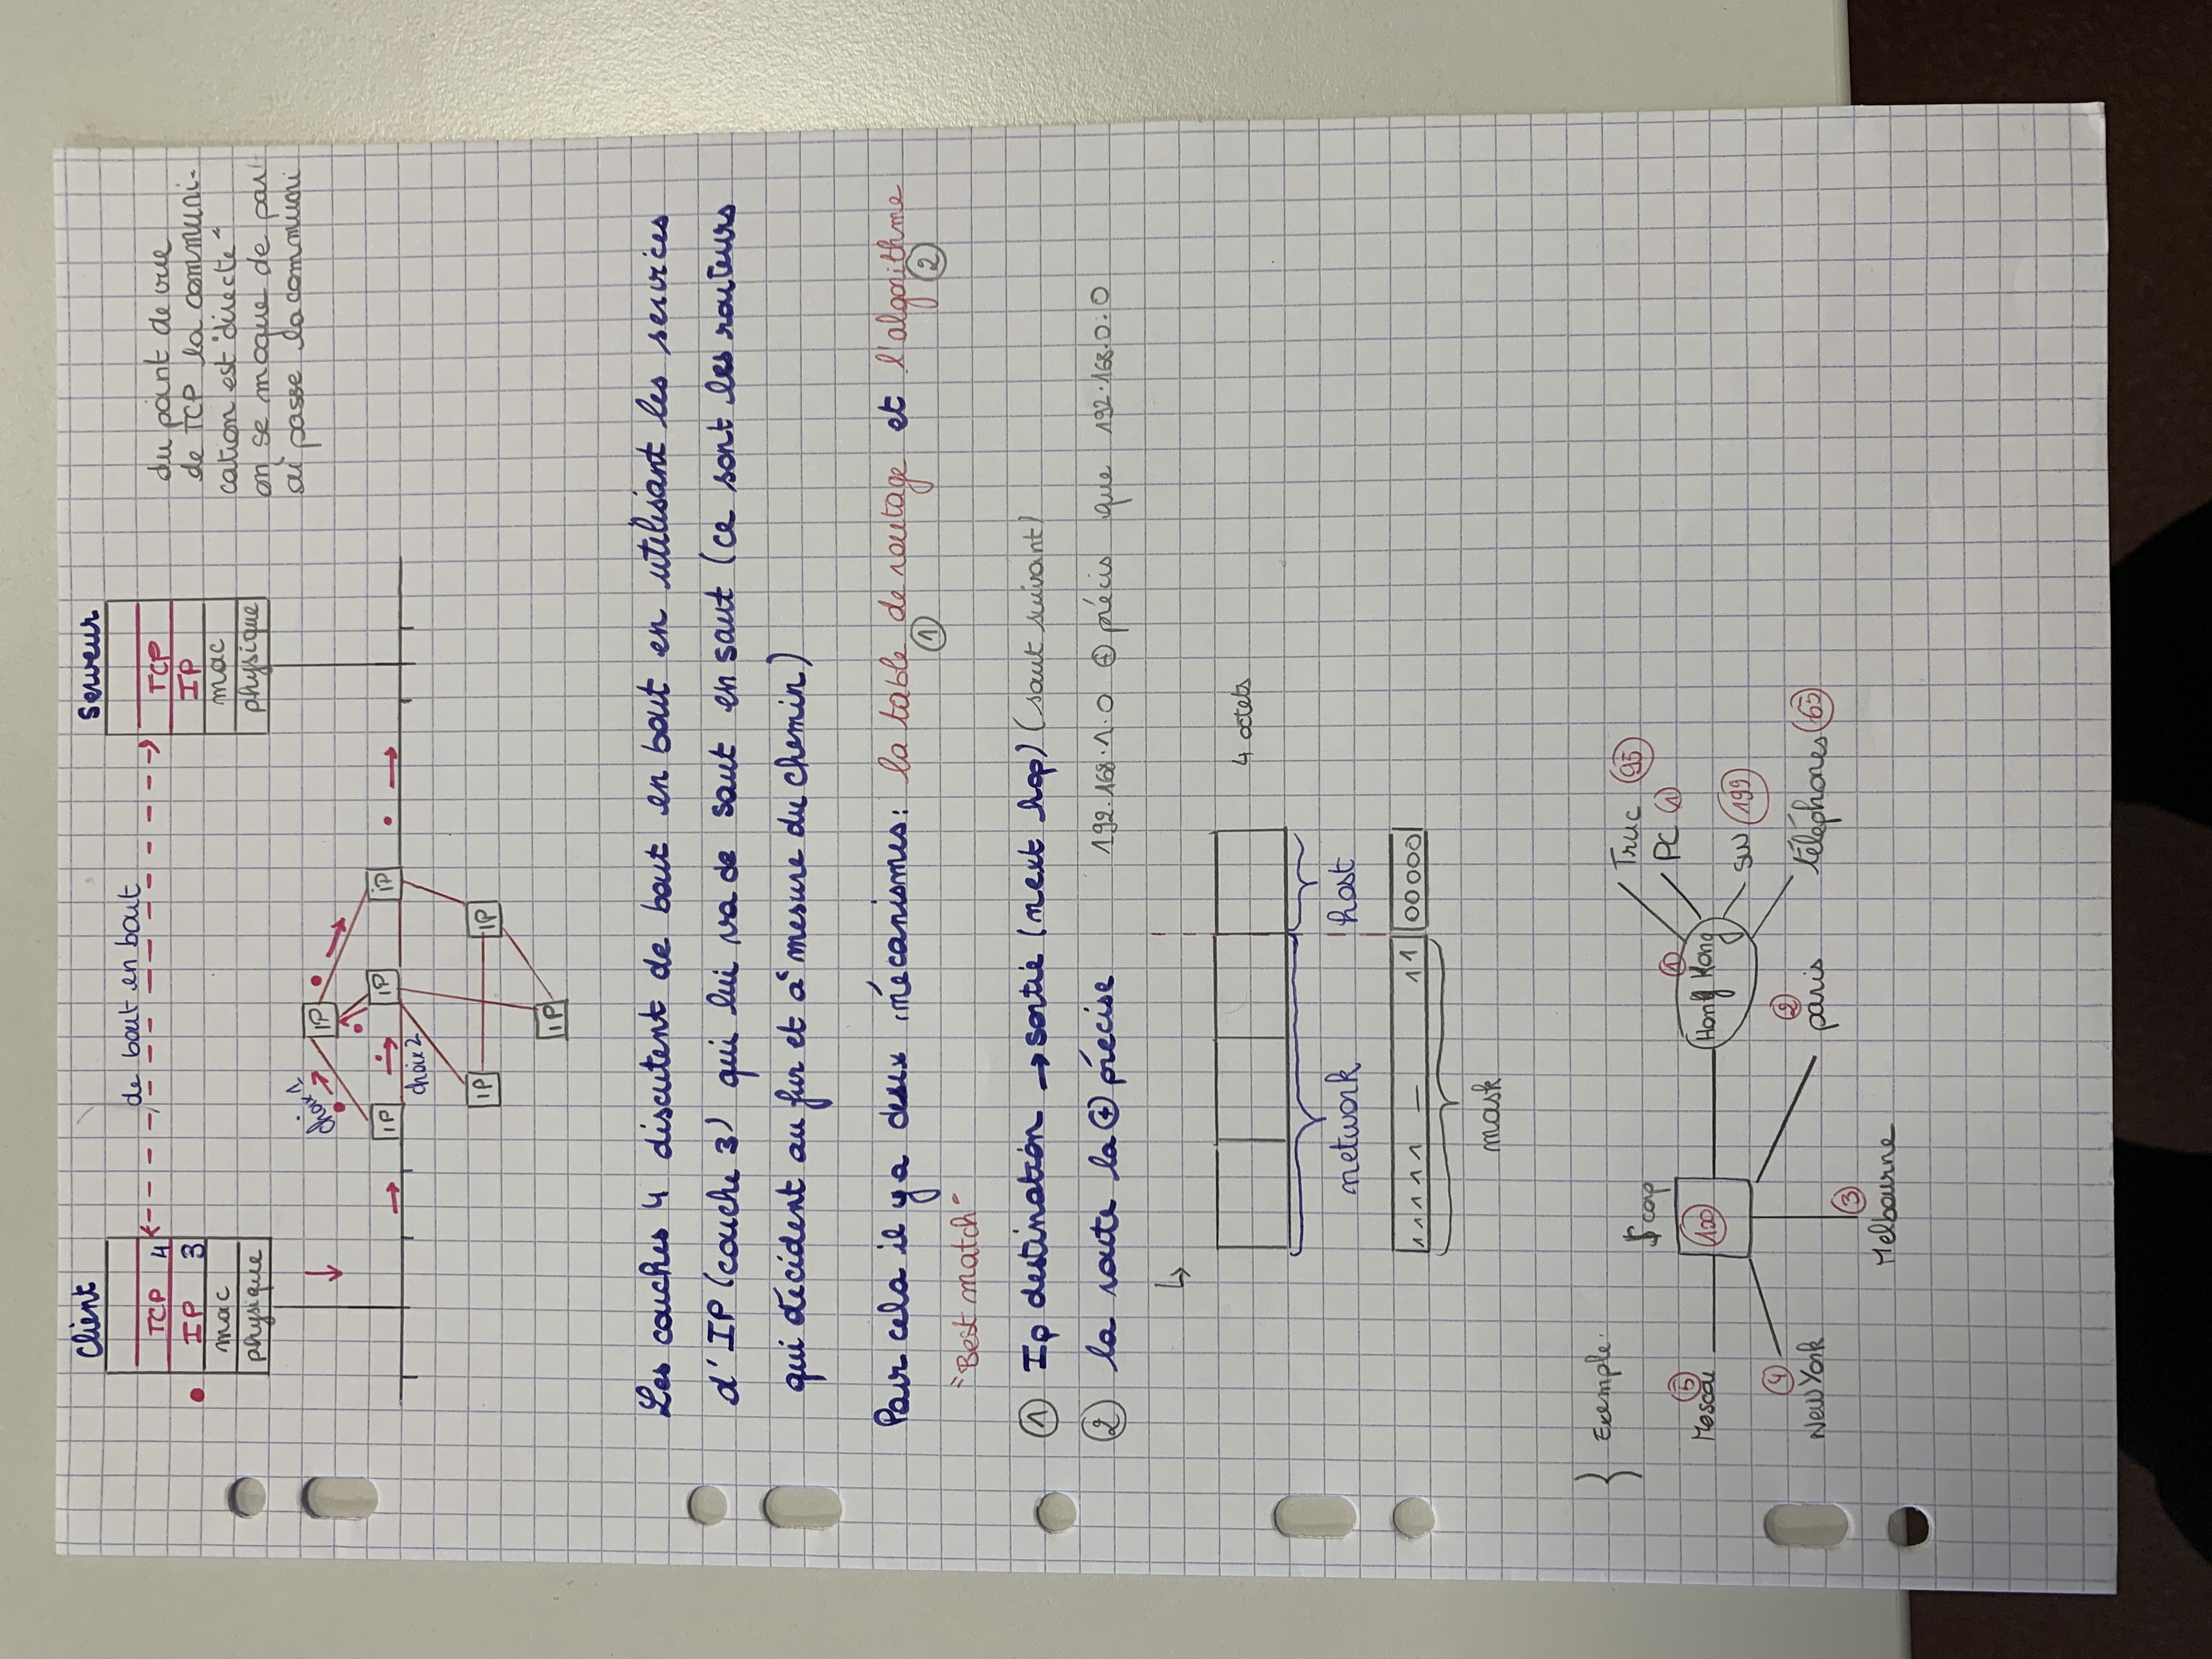 Client
Serveur
de bout en bout
TCP 4
IP 3
mac
physique
TCP
IP
mac
physique
du point de vue
de TCP la communi-
cation est "directe"
on se moque de par
où passe la communi
choix 1
IP
IP
IP
IP
choix 2
IP
IP
IP
Les couches 4 discutent de bout en bout en utilisant les services
d'IP (couche 3) qui lui va de saut en saut (ce sont les routeurs
qui décident au fur et à mesure du chemin)
Pour cela il y a deux mécanismes: la table de routage et l'algorithme
1 2
"Best match"
1 Ip destination → sortie (next hop) (saut suivant)
2 la route la + précise 192.168.1.0 + précis que 192.168.0.0
4 octets
network host
11111 — 11 00000
mask
Exemple.
$ corp
Truc 95
5
Moscou
100
1
Hong Kong
PC 1
SW 199
4
New York
2
paris
téléphones 65
3
Melbourne